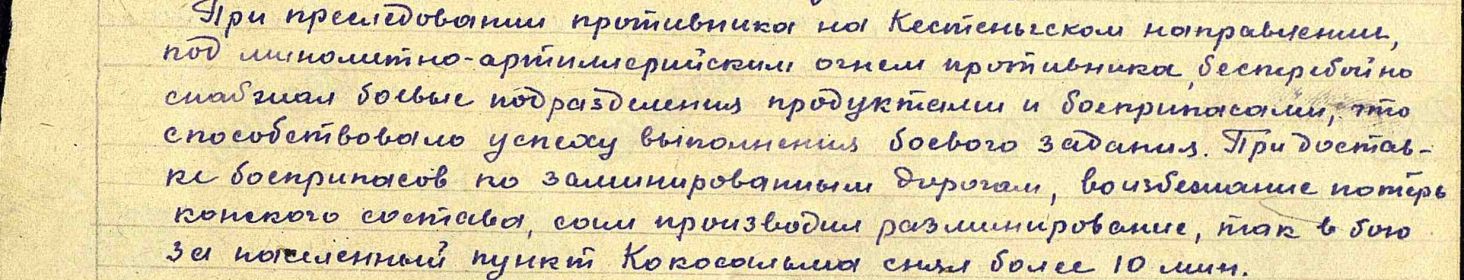 При преследовании противника на Кестеньгском направлении,
под минометно-артиллерийским огнем противника, бесперебойно
снабжал боевые подразделения продуктами и боеприпасами, что
способствовало успеху выполнения боевого задания. При достав-
ке боеприпасов по заминированным дорогам, воизбежание потерь
конского состава, сам производил разминирование, так в бою
за населенный пункт Кокосальма снял более 10 мин.